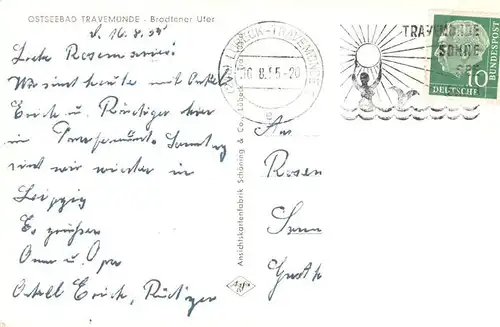 OSTSEEBAD TRAVEMÜNDE - Brodtener Ufer
d. 16.8.55
Liebe Rosemarie!
Wir sind heute mit Onkel
Erich u. Rüdiger hier
in Travemünde. Sonntag
sind wir wieder in
Leipzig
Es grüßen
Oma u. Opa
Onkel Erich, Rüdiger
Ansichtskartenfabrik Schöning & Co., Lübeck
LÜBECK-TRAVEMÜNDE
16.8.55-20
TRAVEMÜNDE
SONNE
SEE
10
DEUTSCHE
BUNDESPOST
An
Rosem